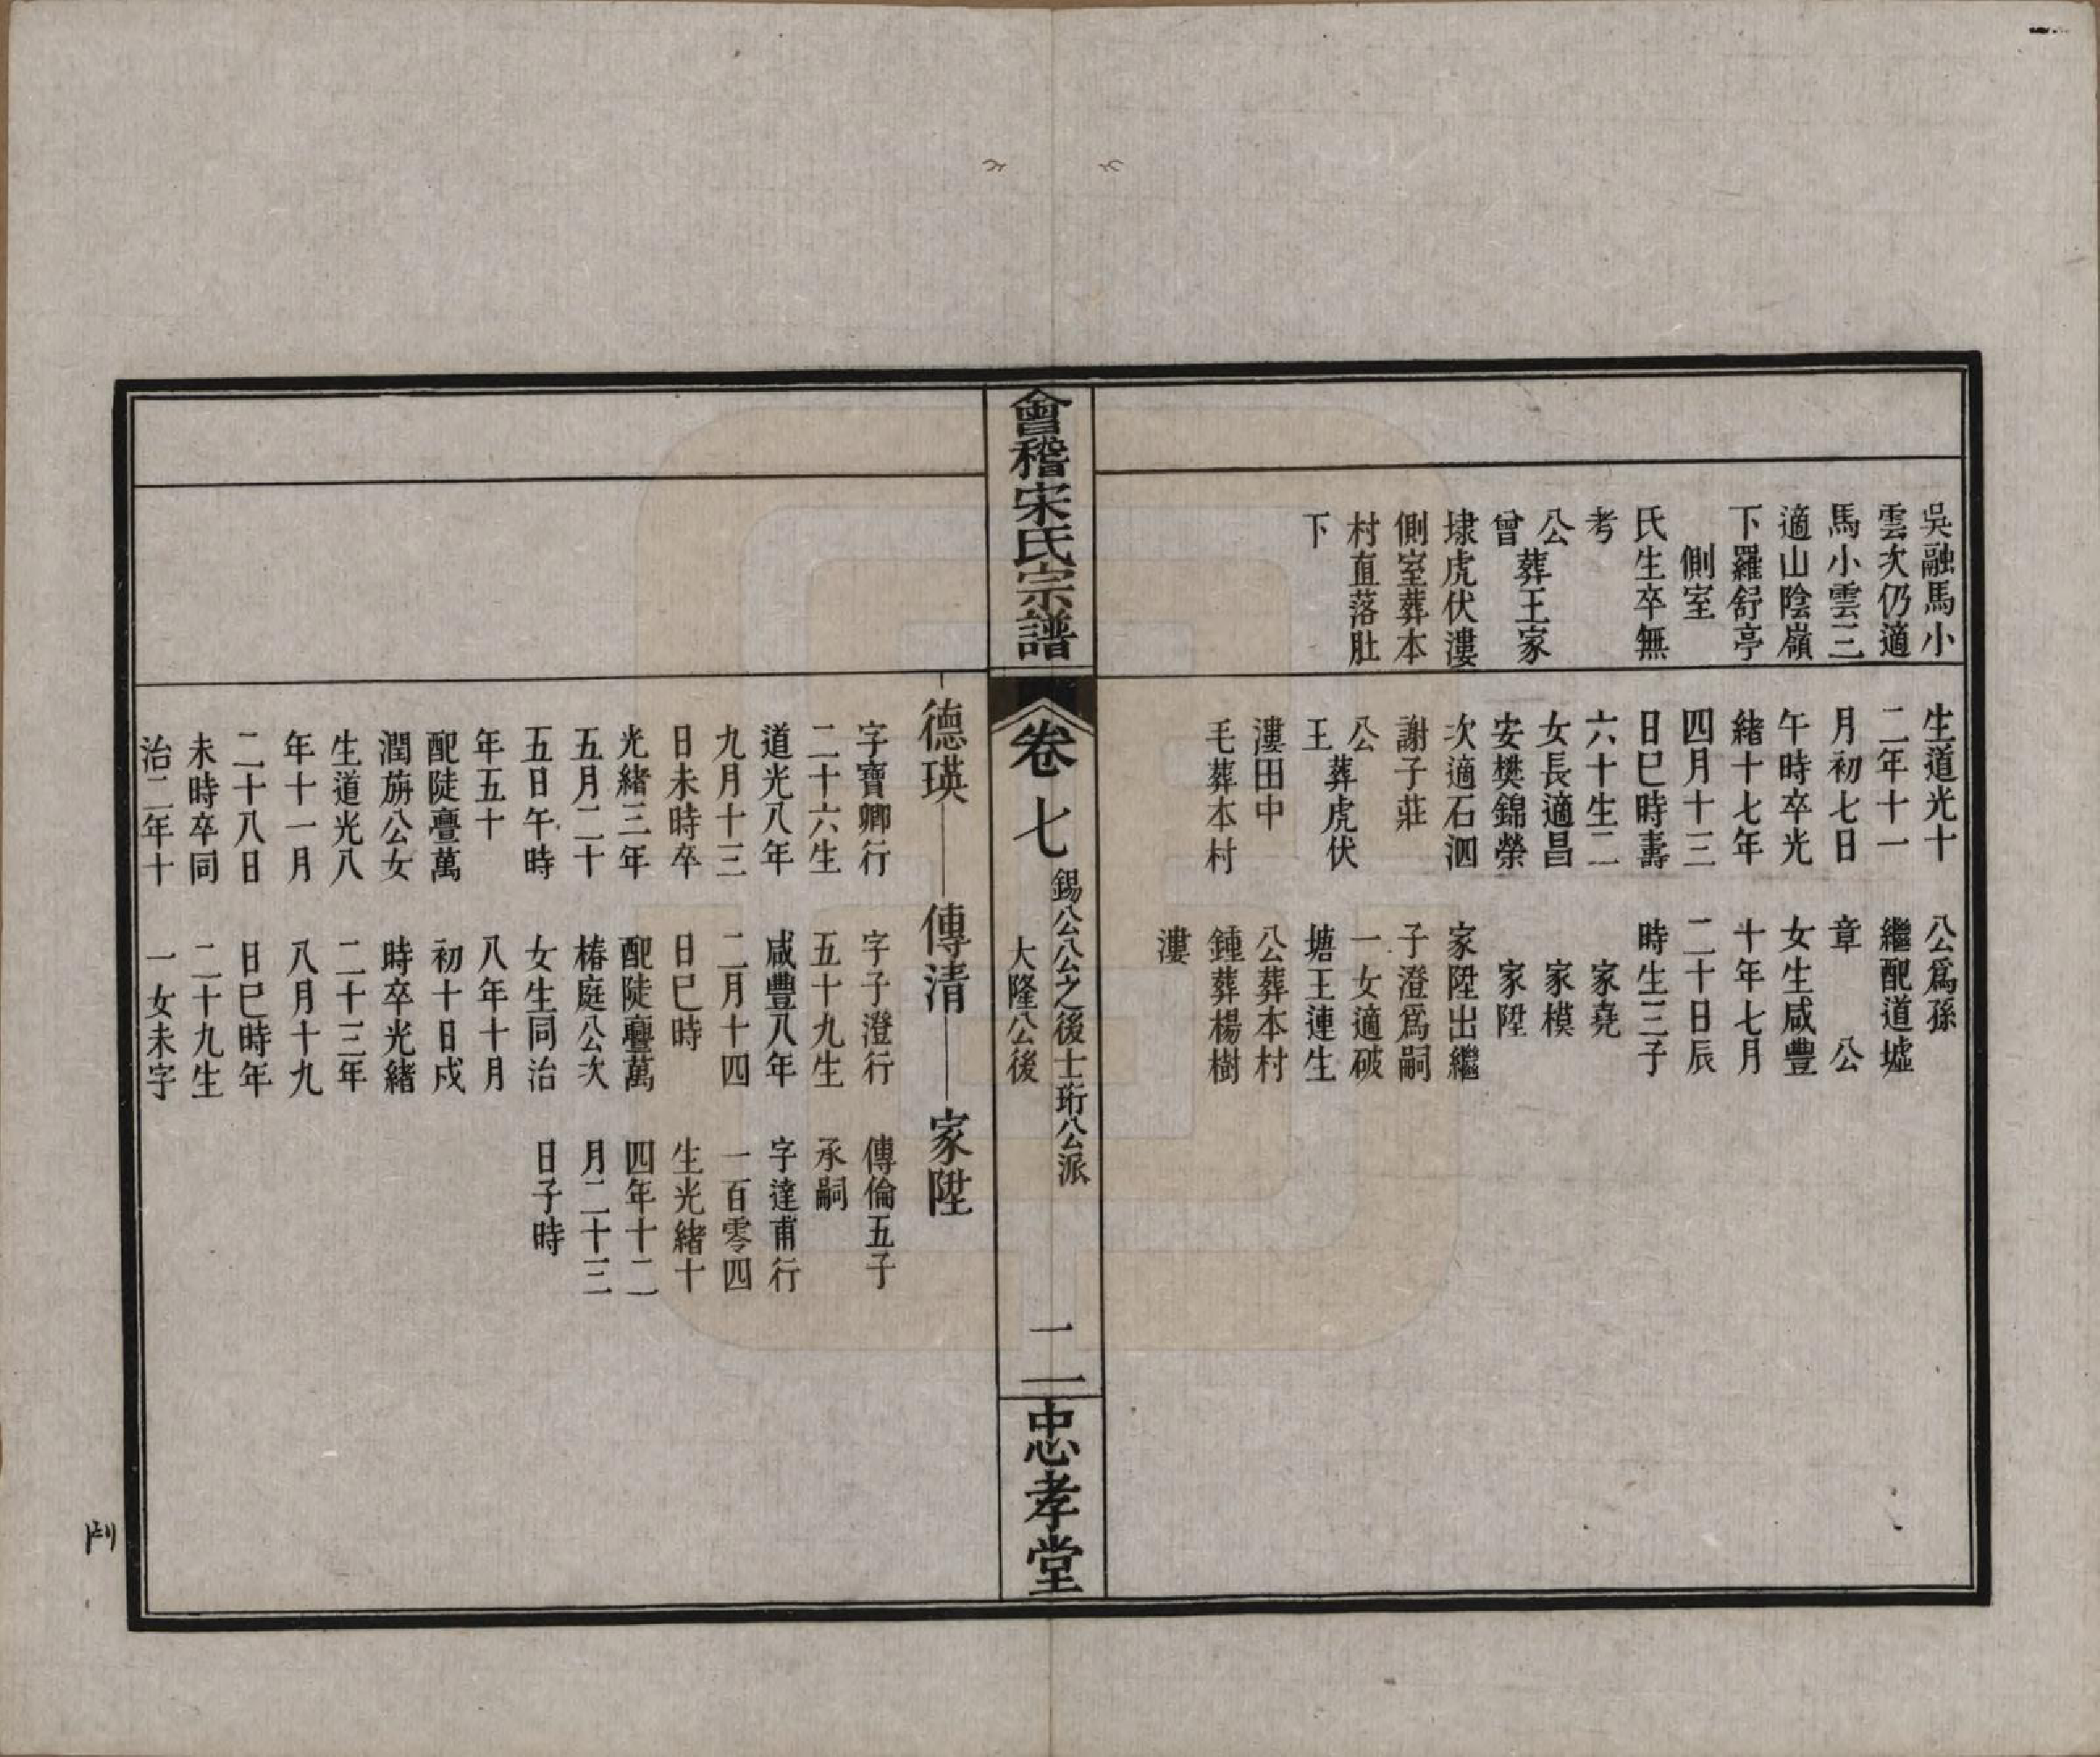 吳融馬小
雲次仍適
馬小雲三
適山陰嶺
下羅舒亭
側室
氏生卒無
考
公
葬王家
曾
埭虎伏漊
側室葬本
村直落肚
下
生道光十
二年十一
月初七日
午時卒光
緒十七年
四月十三
日巳時壽
六十生二
女長適昌
安樊錦榮
次適石泗
謝子莊
公
葬虎伏
王
漊田中
毛葬本村
公爲孫
繼配道墟
章 公
女生咸豐
十年七月
二十日辰
時生三子
家堯
家模
家陞
家陞出繼
子澄爲嗣
一女適破
塘王連生
公葬本村
鍾葬楊樹
漊
會稽宋氏宗譜
卷七
錫公公之後士珩公派
大隆公後
二
忠孝堂
德瑛——傳清——家陞
字寶卿行
二十六生
道光八年
九月十三
日未時卒
光緒三年
五月二十
五日午時
年五十
配陡亹萬
潤旃公女
生道光八
年十一月
二十八日
未時卒同
治二年十
字子澄行
五十九生
咸豐八年
二月十四
日巳時
配陡亹萬
椿庭公次
女生同治
八年十月
初十日戌
時卒光緒
二十三年
八月十九
日巳時年
二十九生
一女未字
傳倫五子
承嗣
字達甫行
一百零四
生光緒十
四年十二
月二十三
日子時